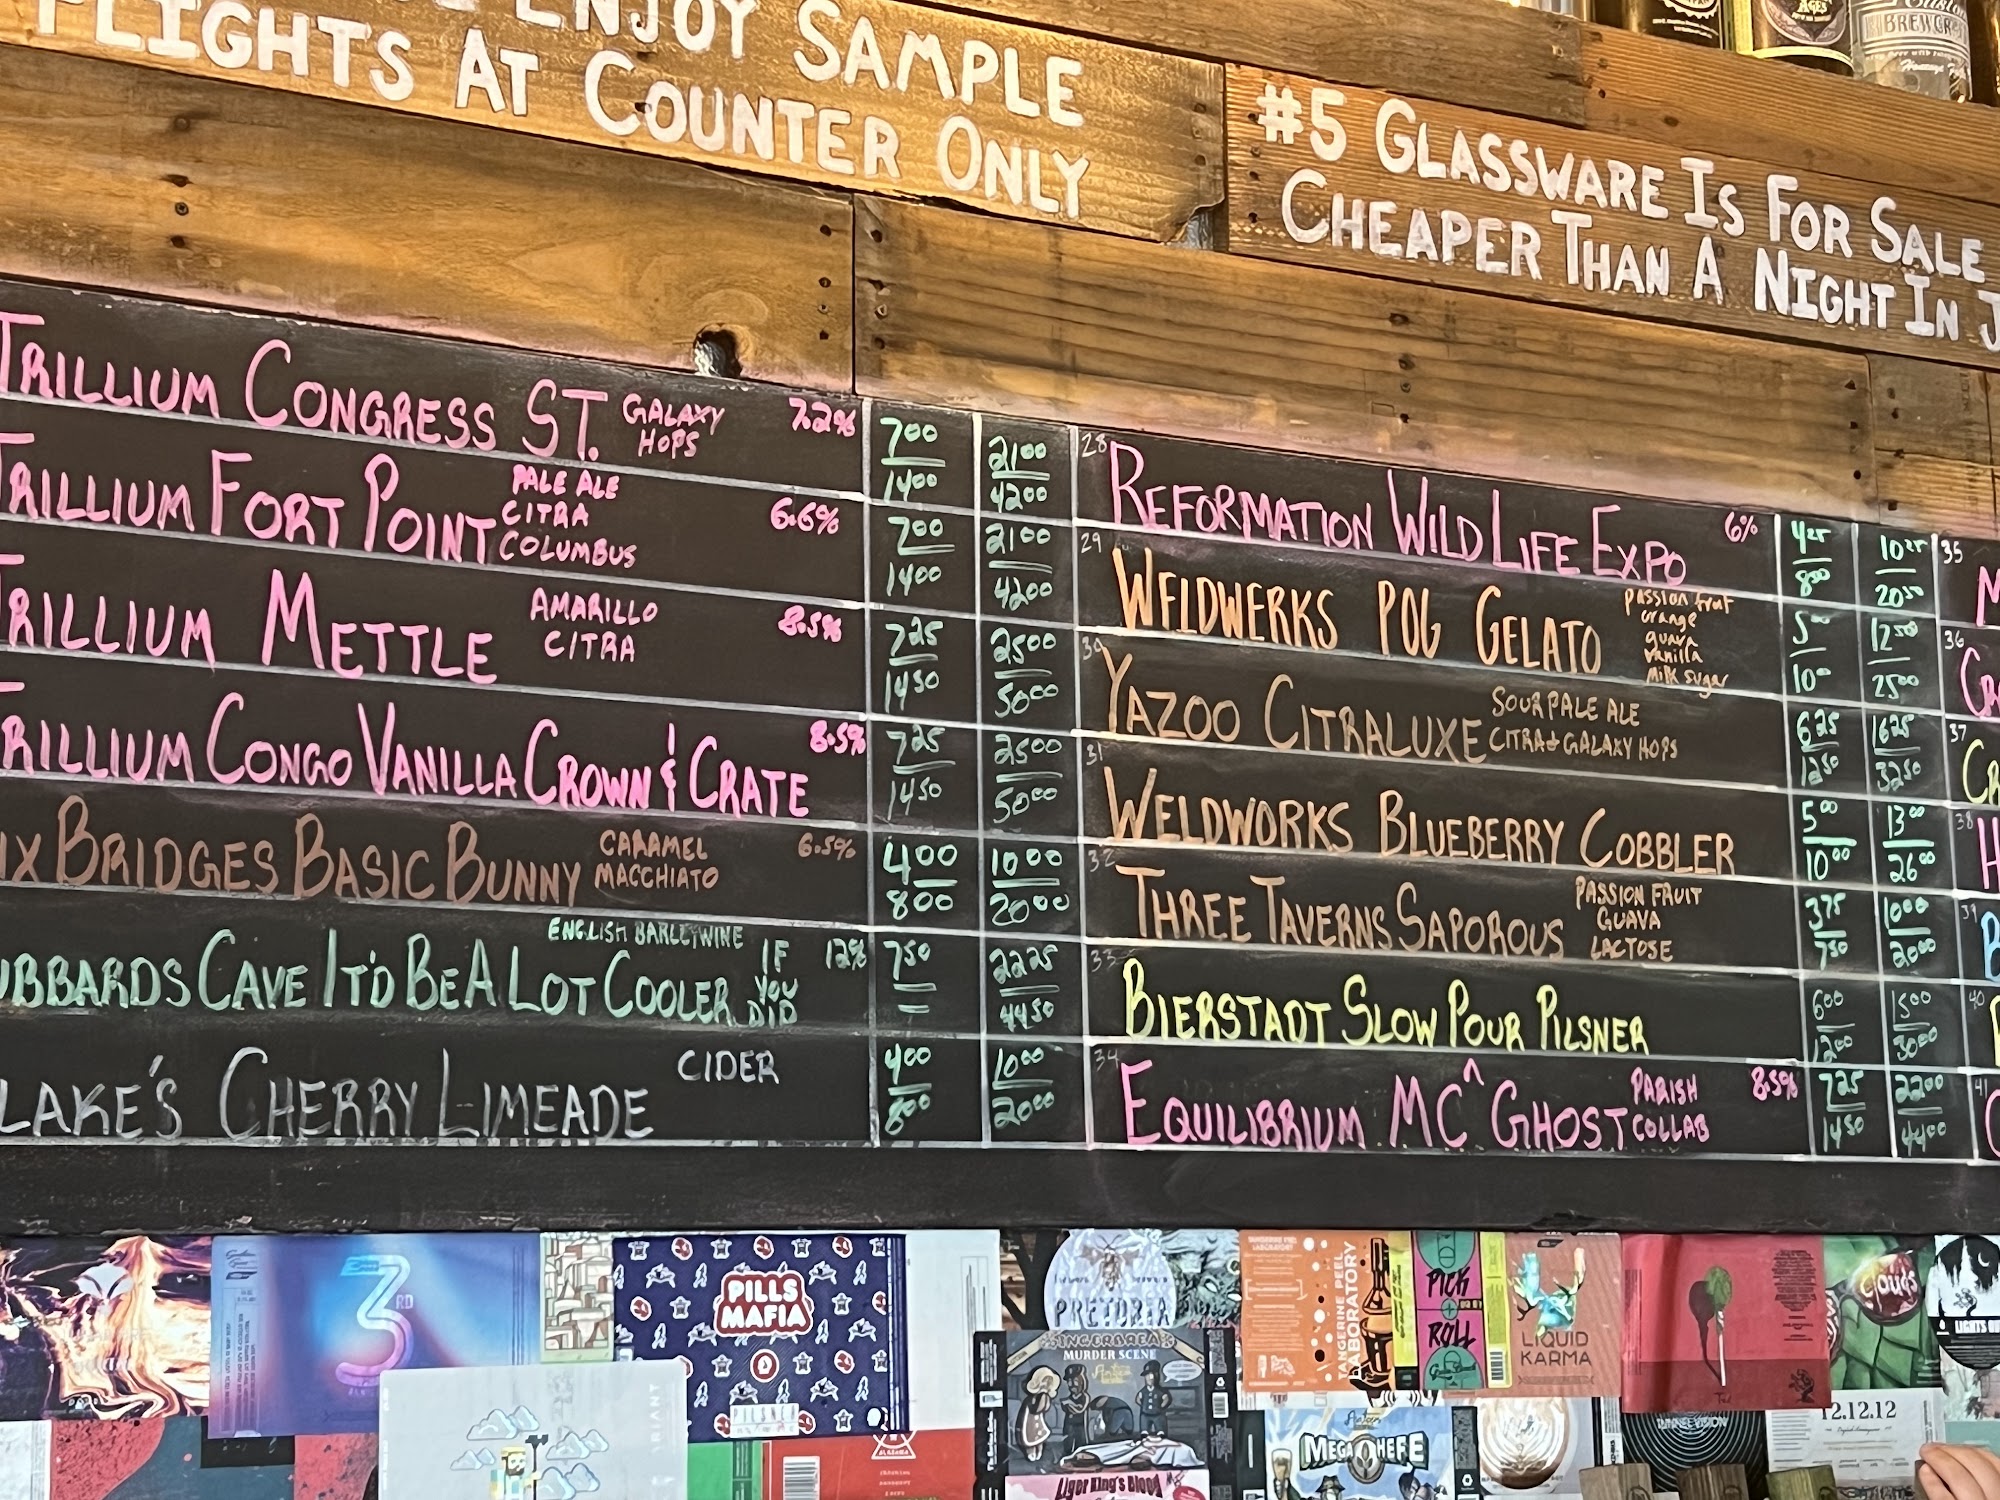 ENJOY SAMPLE
FLIGHTS AT COUNTER ONLY
#5 GLASSWARE IS FOR SALE
CHEAPER THAN A NIGHT IN J
TRILLIUM CONGRESS ST. GALAXY HOPS 7.2% 7.00 14.00 21.00 42.00
TRILLIUM FORT POINT PALE ALE CITRA COLUMBUS 6.6% 7.00 14.00 21.00 42.00
TRILLIUM METTLE AMARILLO CITRA 8.5% 7.25 14.50 25.00 50.00
TRILLIUM CONGO VANILLA CROWN & CRATE 8.5% 7.25 14.50 25.00 50.00
IX BRIDGES BASIC BUNNY CARAMEL MACCHIATO 6.5% 4.00 8.00 10.00 20.00
UBBARDS CAVE IT'D BE A LOT COOLER IF YOU DID ENGLISH BARLEYWINE 12% 7.50 — 22.25 44.50
LAKE'S CHERRY LIMEADE CIDER 4.00 8.00 10.00 20.00
28 REFORMATION WILD LIFE EXPO 6% 4.25 8.00 10.25 20.50
29 WELDWERKS POG GELATO passion fruit orange guava vanilla milk sugar 5.00 10.00 12.50 25.00
30 YAZOO CITRALUXE SOUR PALE ALE CITRA & GALAXY HOPS 6.25 12.50 16.25 32.50
31 WELDWORKS BLUEBERRY COBBLER 5.00 10.00 13.00 26.00
32 THREE TAVERNS SAPOROUS PASSION FRUIT GUAVA LACTOSE 3.75 7.50 10.00 20.00
33 BIERSTADT SLOW POUR PILSNER 6.00 12.00 15.00 30.00
34 EQUILIBRIUM MC^ GHOST PARISH COLLAB 8.5% 7.25 14.50 22.00 44.00
35 M
36 CR
37 CR
38 H
39 B
40
41
3RD
PILLS MAFIA
PILSNER
PRETORIA
GINGERBREAD
MURDER SCENE
Liger King's Blood
TANGERINE PEEL LABORATORY
TANGERINE PEEL
LABORATORY
PICK + ROLL
LIQUID KARMA
Ted
Clouds
LIGHTS OU
MEGA HEFE
TUNNEL VISION
12.12.12
VARIANT
AGES
BREWING